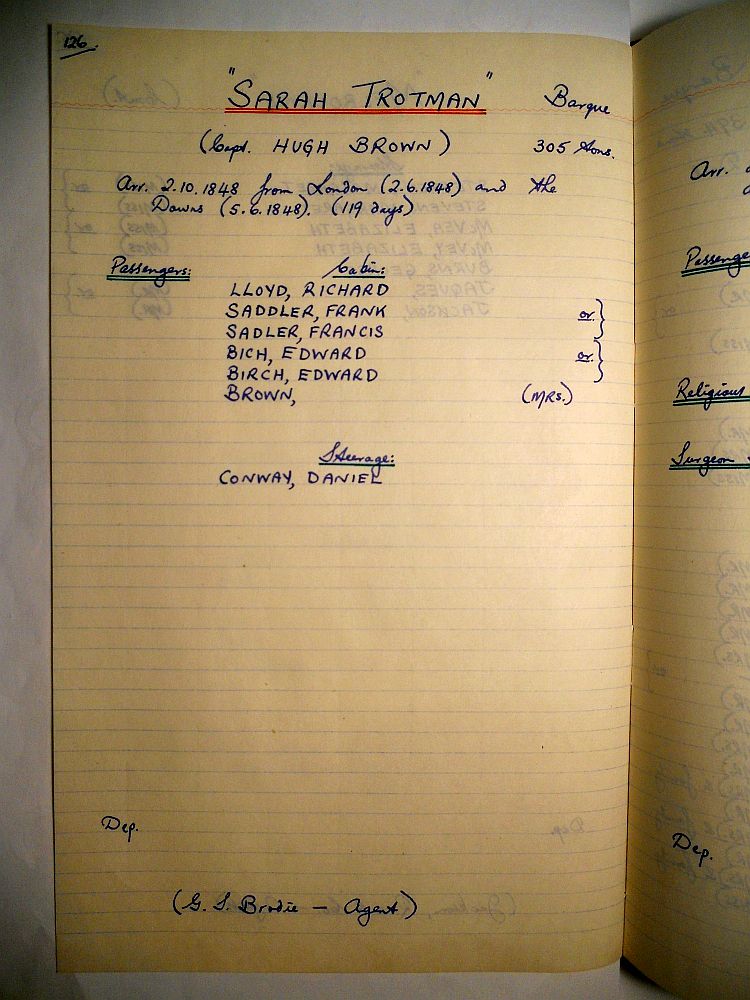 126.
"SARAH TROTMAN" Barque
(Capt. HUGH BROWN) 305 tons.
Arr. 2.10.1848 from London (2.6.1848) and the
Downs (5.6.1848). (119 days)
Passengers: Cabin:
LLOYD, RICHARD
SADDLER, FRANK or }
SADLER, FRANCIS
BICH, EDWARD or }
BIRCH, EDWARD
BROWN, (MRS.)
Steerage:
CONWAY, DANIEL
Dep.
(G. S. Brodie – Agent)
Arr.
Passenge
Religious
Surgeon
Dep.